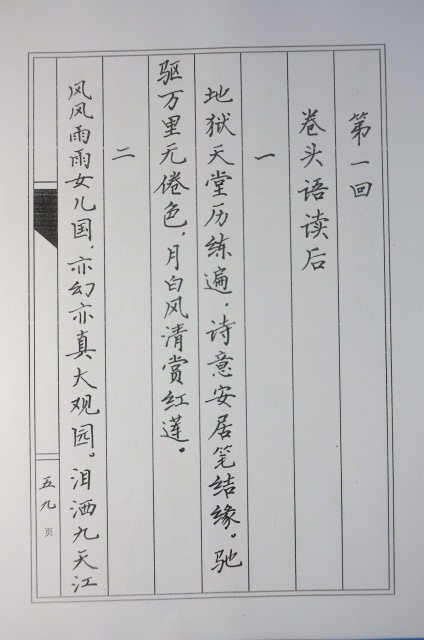 第一回
卷头语读后
一
地狱天堂历练遍，诗意安居笔结缘。驰
驱万里无倦色，月白风清赏红莲。
二
风风雨雨女儿国，亦幻亦真大观园。泪洒九天江
五九页